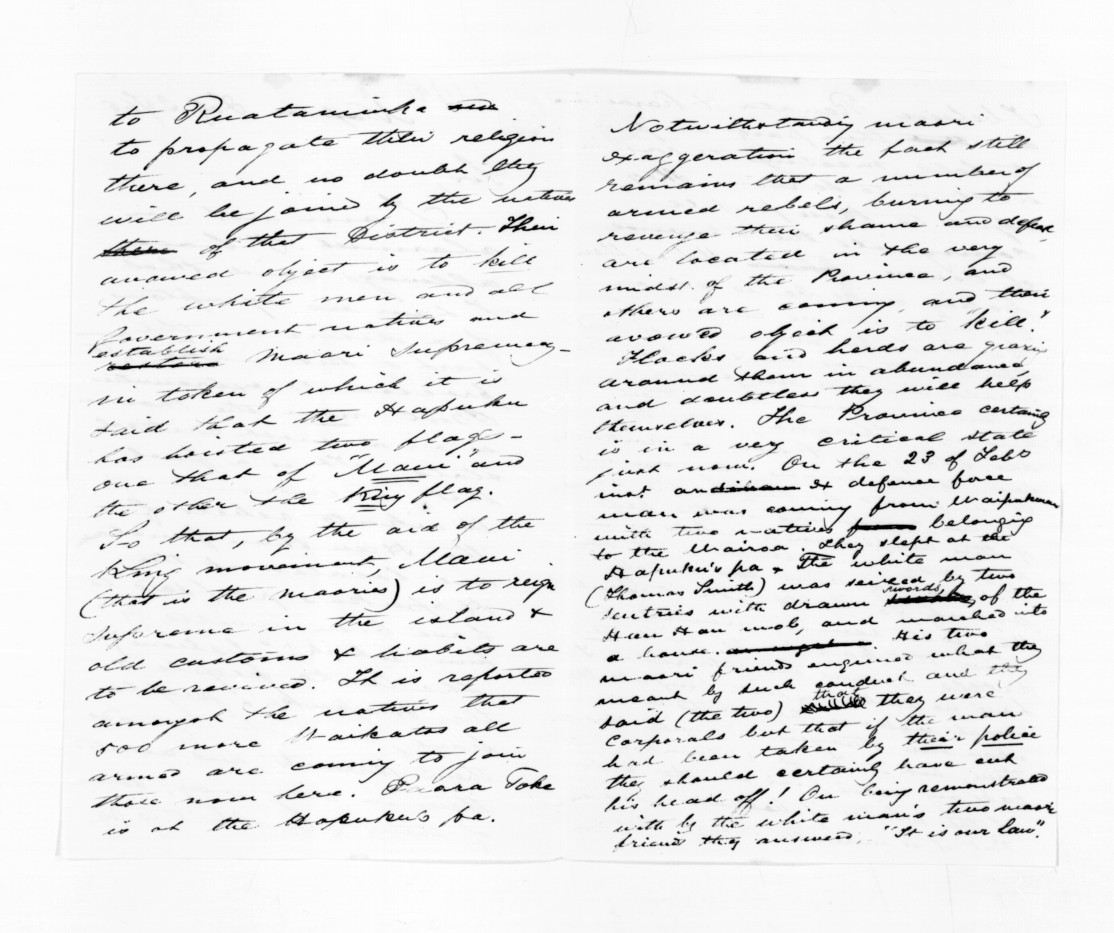 to Ruataniwha and
to propagate their religion
there, and no doubt they
will be joined by the natives
there of that District. Their
avowed object is to kill
the white men and all
Government natives and
establish
restore maori supremacy -
in token of which it is
said that the Hapuku
has hoisted two flags -
one that of "Maui" and
the other the King flag.
So that, by the aid of the
King movement, Maui
(that is the maories) is to reign
supreme in the island &
old customs & habits are
to be revived. It is reported
amongst the natives that
500 more Waikatos all
armed are coming to join
those now here. Paora Toke
is at the Hapuku's pa.
Notwithstanding maori
exaggeration the fact still
remains that a number of
armed rebels, burning to
revenge their shame and defeat,
are located in the very
midst of the Province, and
others are coming, and their
avowed object is to "kill."
Flocks and herds are grazing
around them in abundance,
and doubtless they will help
themselves. The Province certainly
is in a very critical state
just now. On the 23 of Feb
inst an ex defence force
man was coming from Waipukurau
with two natives from belonging
to the Wairoa. They slept at the
Hapuku's pa & The white man
(Thomas Smith) was seized by two
swords
sentries with drawn of the
Hau Hau mob, and marched into
a house. His two
maori friends enquired what they
meant by such conduct and they
that
said (the two) they were
corporals but that if the man
had been taken by their police
they should certainly have cut
his head off! On being remonstrated
with by the white man's two maori
friends they answered, "It is our law".